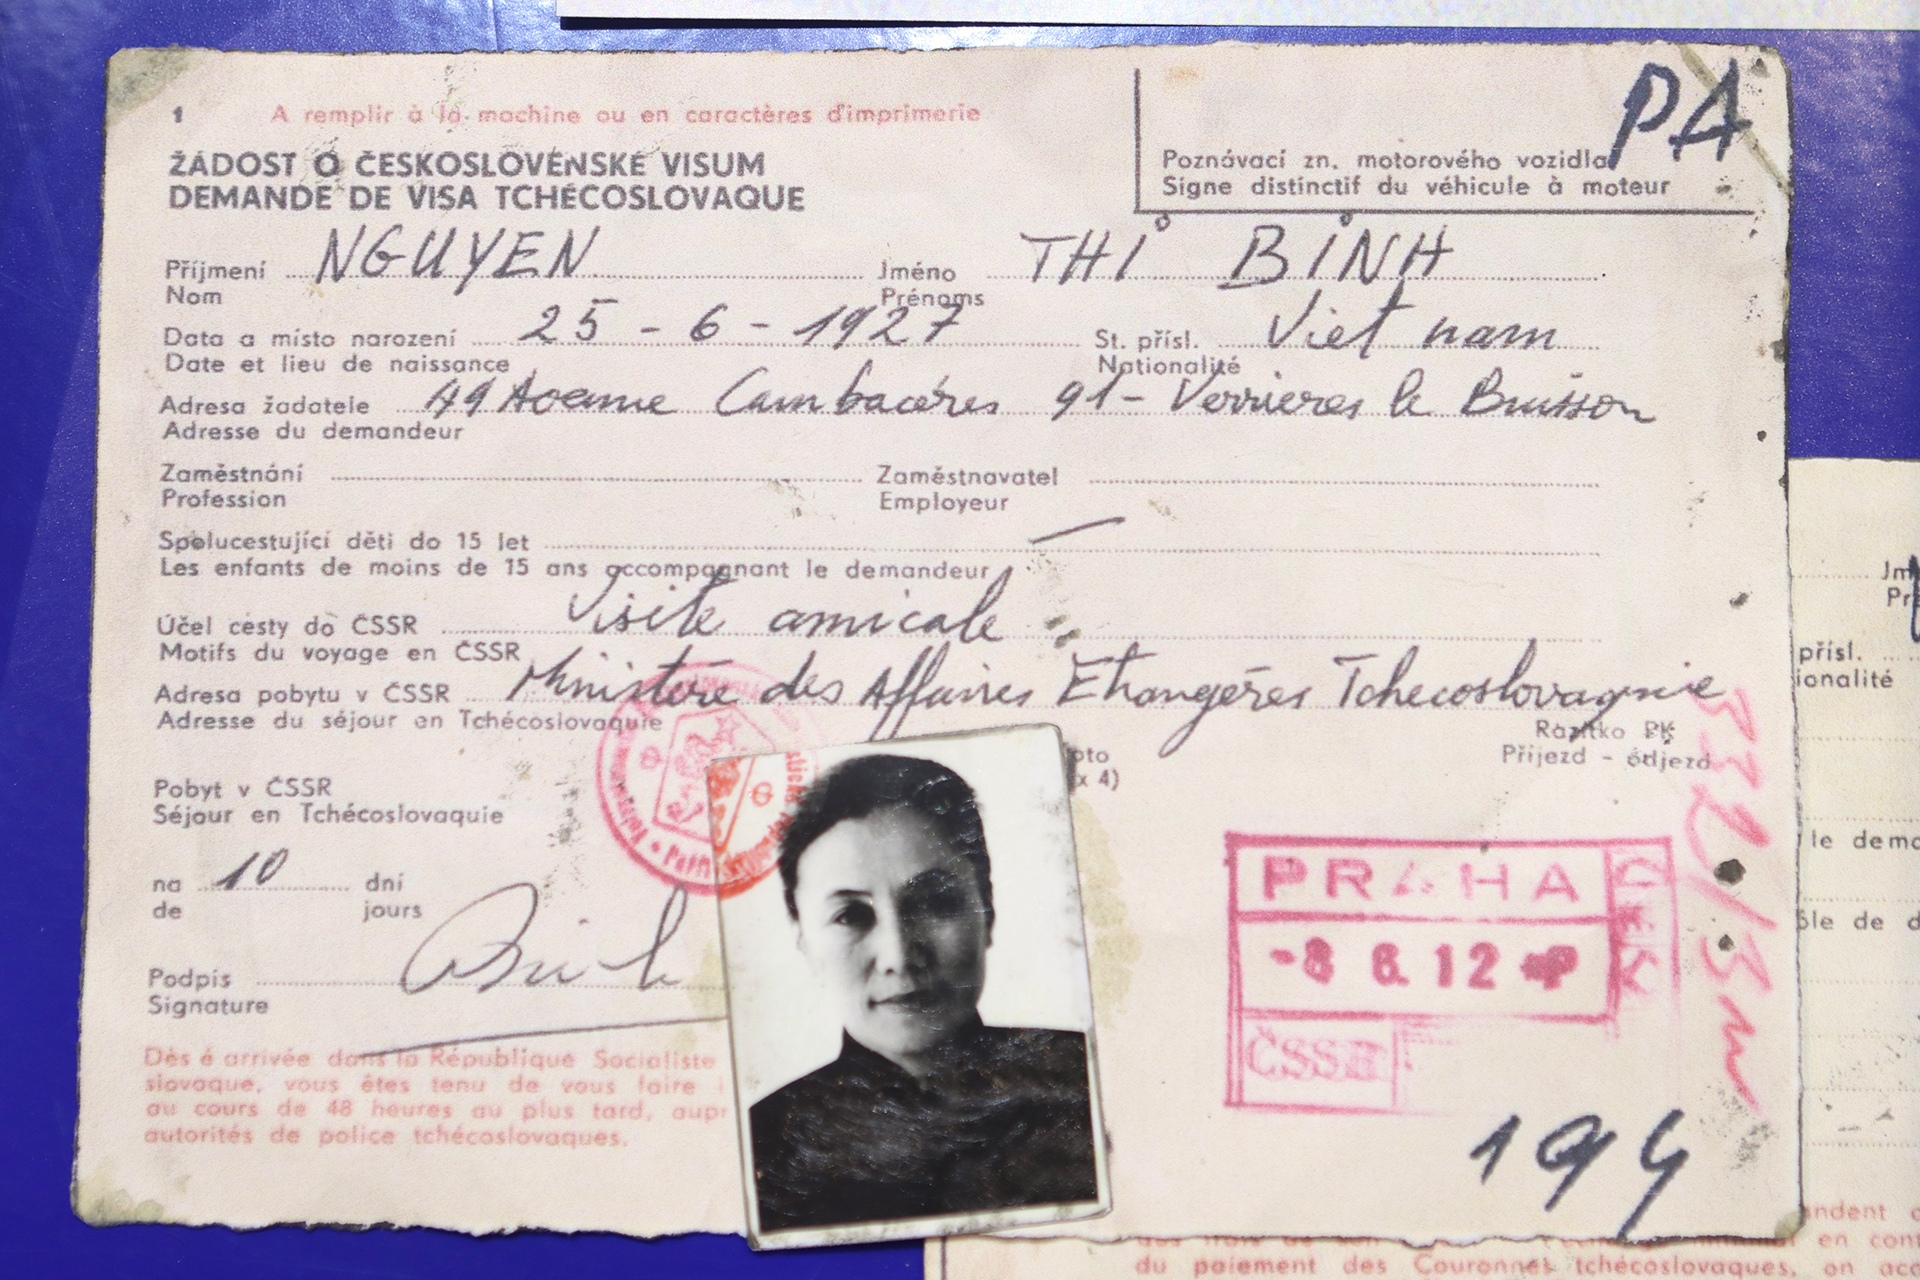 1 A remplir à la machine ou en caractères d'imprimerie
PA
ŽÁDOST O ČESKOSLOVENSKÉ VISUM
DEMANDE DE VISA TCHÉCOSLOVAQUE
Poznávací zn. motorového vozidla
Signe distinctif du véhicule à moteur
Příjmení NGUYEN Jméno THI BINH
Nom Prénoms
Data a místo narození 25 - 6 - 1927 St. přísl. Viet nam
Date et lieu de naissance Nationalité
Adresa žadatele 49 Avenue Cambacérès 91 - Verrières le Buisson
Adresse du demandeur
Zaměstnání Zaměstnavatel
Profession Employeur
Spolucestující děti do 15 let —
Les enfants de moins de 15 ans accompagnant le demandeur
Účel cesty do ČSSR Visite amicale
Motifs du voyage en ČSSR
Adresa pobytu v ČSSR Ministère des Affaires Etrangères Tchecoslovaquie
Adresse du séjour en Tchécoslovaquie
Razítko PK
Příjezd - odjezd
oto
x 4)
Pobyt v ČSSR
Séjour en Tchécoslovaquie
na 10 dní
de jours
Podpis Binh
Signature
PRAHA
-8 6. 12
ČSSR
Dès é arrivée dans la République Socialiste
slovaque, vous êtes tenu de vous faire
au cours de 48 heures au plus tard, aupr
autorités de police tchécoslovaques.
194
Jm
Pr
přísl.
ionalité
le dema
ôle de d
andent
en con
du paiement des Couronnes tchécoslovaques, on acc